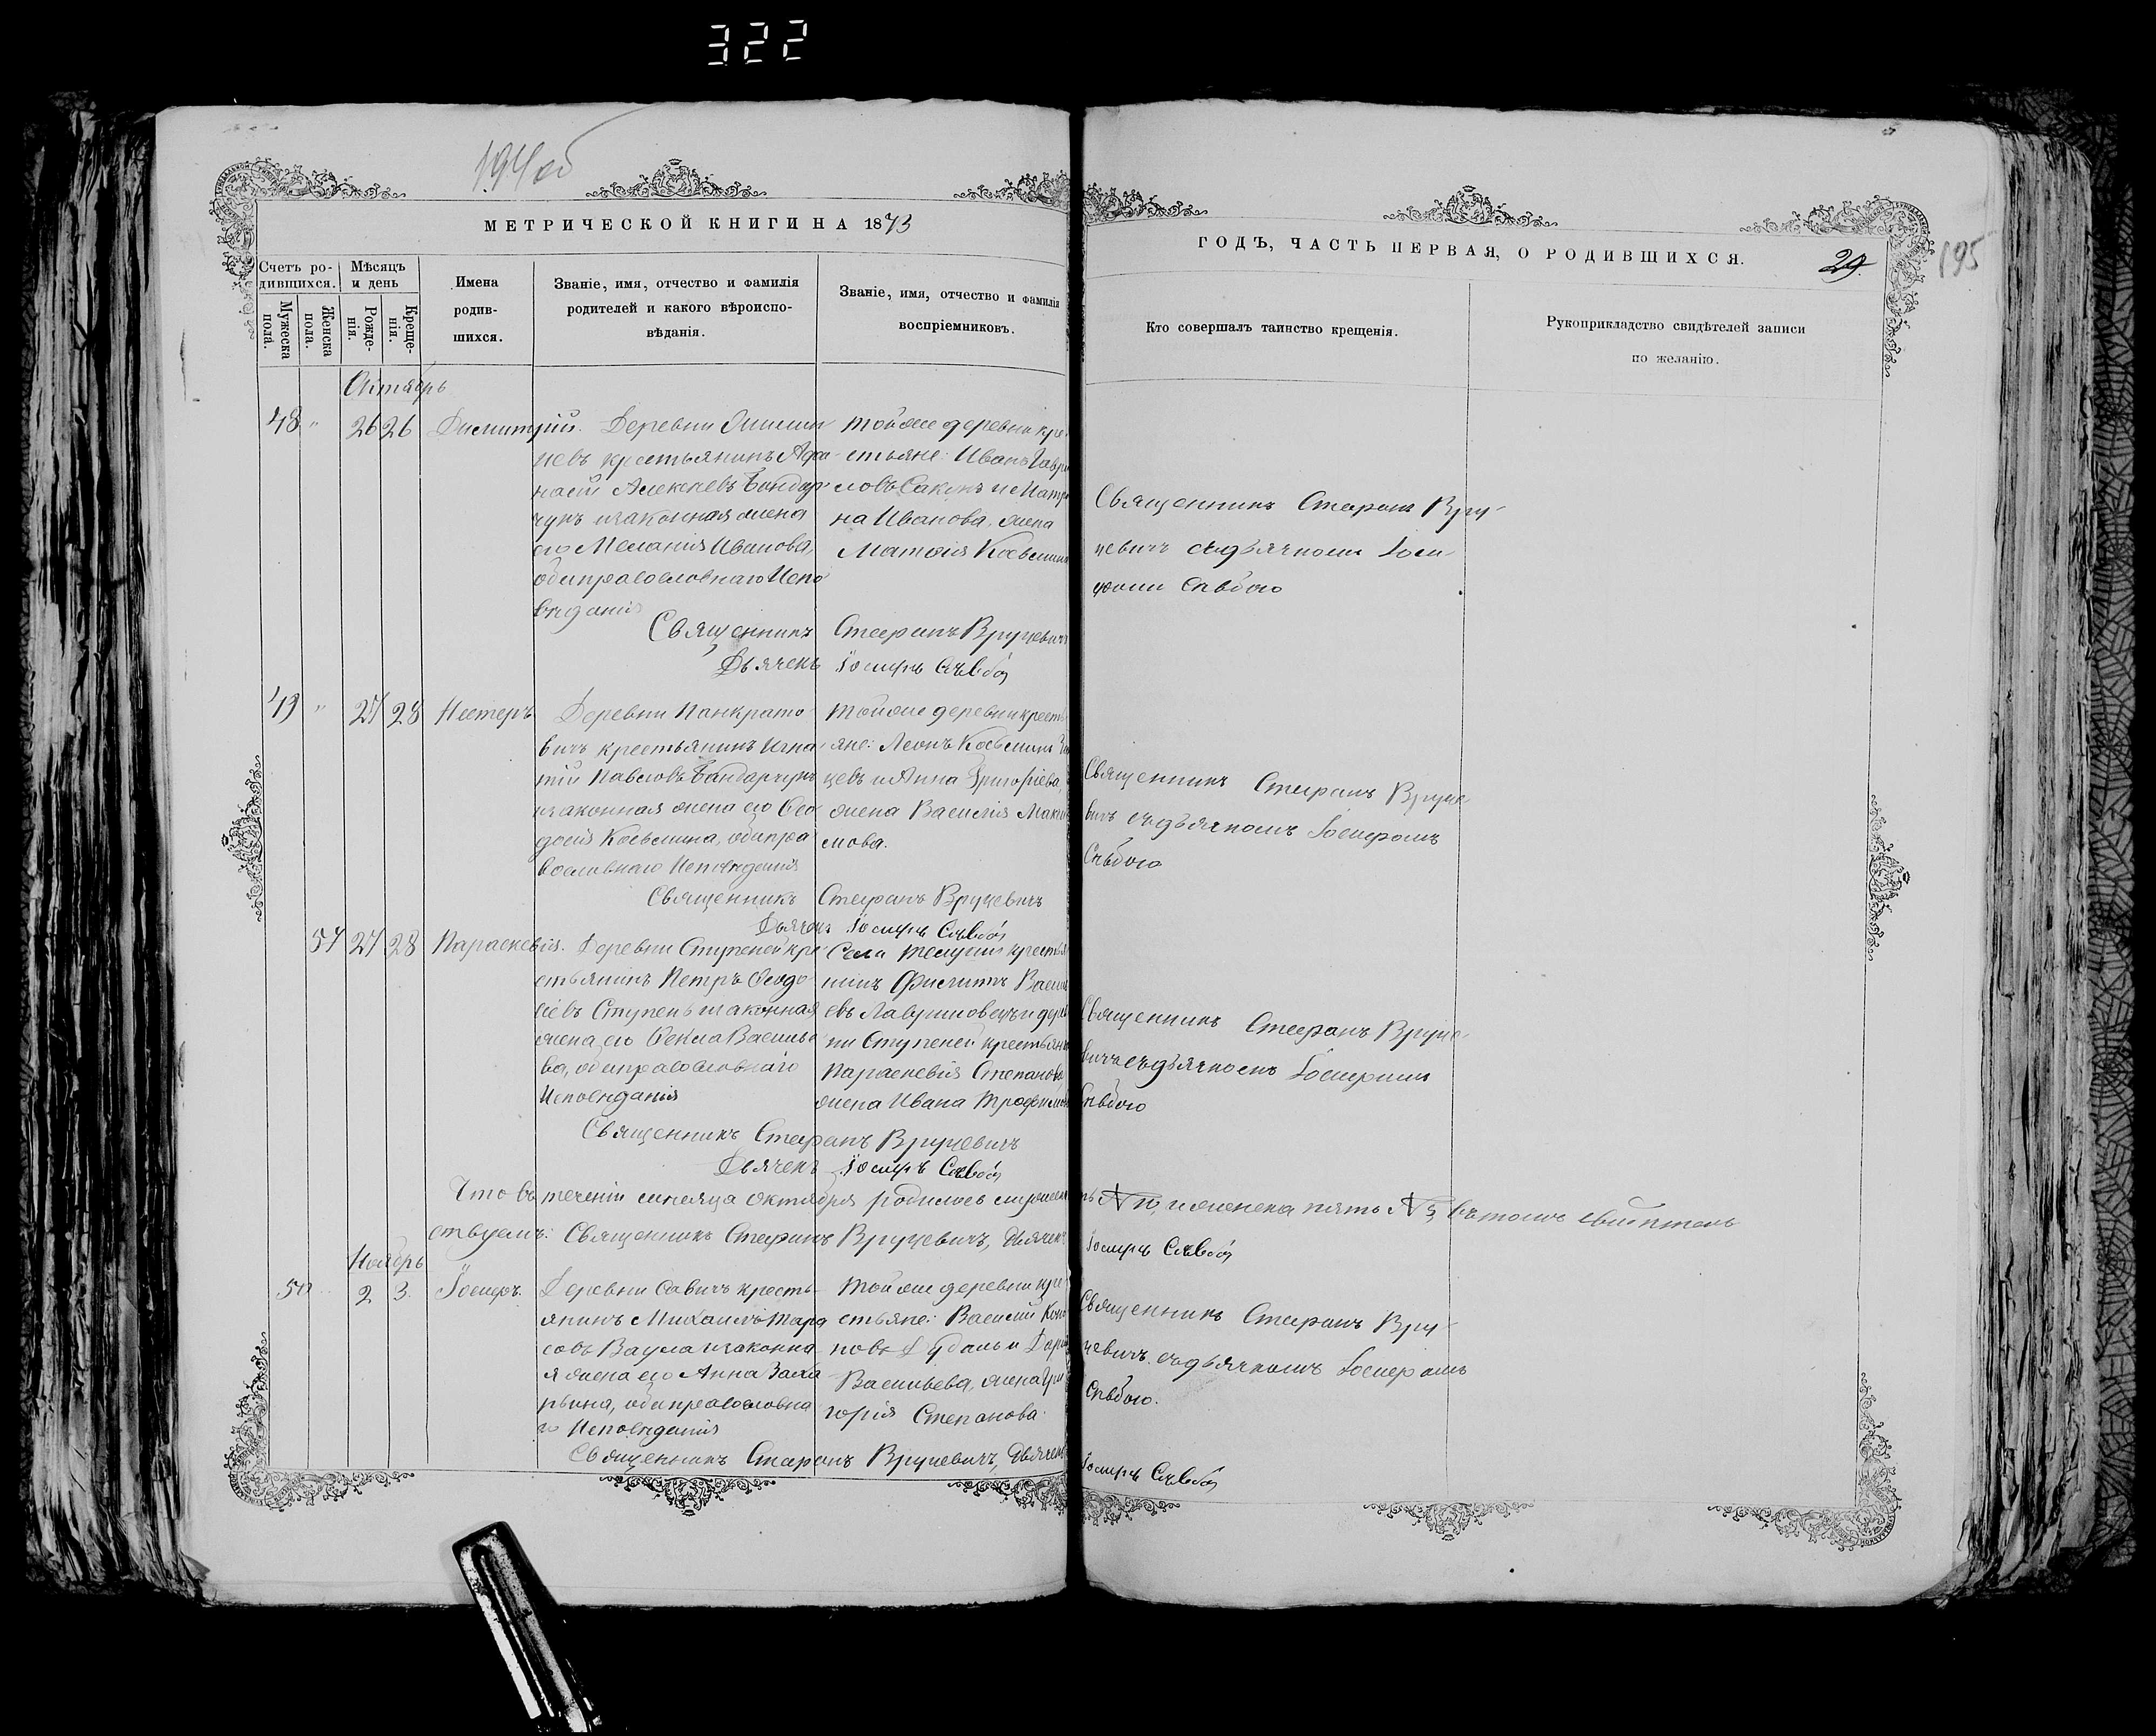 322
194об
МЕТРИЧЕСКОЙ КНИГИ НА 1873
ГОДЪ, ЧАСТЬ ПЕРВАЯ, О РОДИВШИХСЯ.
29.
195
Счетъ ро-
дившихся.
Мужеска
пола.
Женска
пола.
Мѣсяцъ
и день
Рожде-
нія.
Креще-
нія.
Имена
родив-
шихся.
Званіе, имя, отчество и фамилія
родителей и какого вѣроиспо-
вѣданія.
Званіе, имя, отчество и фамилія
воспріемниковъ.
Кто совершалъ таинство крещенія.
Рукоприкладство свидѣтелей записи
по желанію.
Октябрь
48 " 26 26 Димитрій.
Деревни
невъ крестьянинъ Афа-
насій Алексѣевъ Бондар-
чукъ и законная жена
его Меланія Иванова,
оба православнаго Испо
вѣданія
Тойже деревни кре-
стьяне: Иванъ Гаври
ловъ и Матро
на Иванова, жена
Матѳія Косьмина
Священникъ Стефанъ Вру-
цевичъ съ дьячкомъ Іоси-
фомъ Слѣбою
Священникъ Стефанъ Вруцевичъ
Дьячекъ Іосифъ Слѣбой
49 " 27 28 Нестеръ
Деревни Панкрато
вичъ крестьянинъ Игна-
тій Павловъ Бондарчукъ
и законная жена его Ѳео
досія Косьмина, оба пра
вославнаго Исповѣданія
Тойже деревни кресть
яне: Леонъ Косьминъ
цевъ и Анна Григоріева,
жена Василія Макси
мова.
Священникъ Стефанъ Вруце-
вичъ съ дьячкомъ Іосифомъ
Слѣбою
Священникъ Стефанъ Вруцевичъ
Дьячекъ Іосифъ Слѣбой
57 27 28 Параскевія.
Деревни Ступеней кре
стьянинъ Петръ Ѳеодо
сіевъ Ступень и законная
жена его Ѳекла Василье
ва, оба православнаго
Исповѣданія
Села кресть
нинъ Филиппъ Василь
евъ и дерев
ни Ступеней крестьянка
Параскевія Степанова,
жена Ивана Трофимова
Священникъ Стефанъ Вруце-
вичъ съ дьячкомъ Іосифомъ
Слѣбою
Священникъ Стефанъ Вруцевичъ
Дьячекъ Іосифъ Слѣбой
Что въ теченіи мѣсяца Октября родилось мужеска
N 10, и женска пять N 5, въ томъ свидѣтель
ствуемъ: Священникъ Стефанъ Вруцевичъ, Дьячекъ
Іосифъ Слѣбой
Ноябрь
50 " 2 3. Іосифъ.
Деревни Савичъ кресть-
янинъ Михаилъ Тара
совъ и законна
я жена его Анна Заха
рьина, оба православна
го Исповѣданія
Тойже деревни кре-
стьяне: Василій Коно
новъ и Дарія
Васильева, жена Гри
горія Степанова.
Священникъ Стефанъ Вру-
цевичъ съ дьячкомъ Іосифомъ
Слѣбою.
Священникъ Стефанъ Вруцевичъ, Дьячекъ
Іосифъ Слѣбой